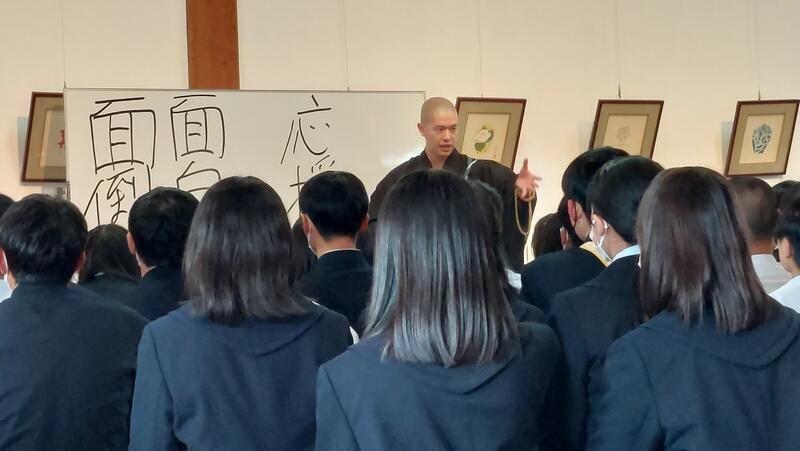 応援
面白
面倒